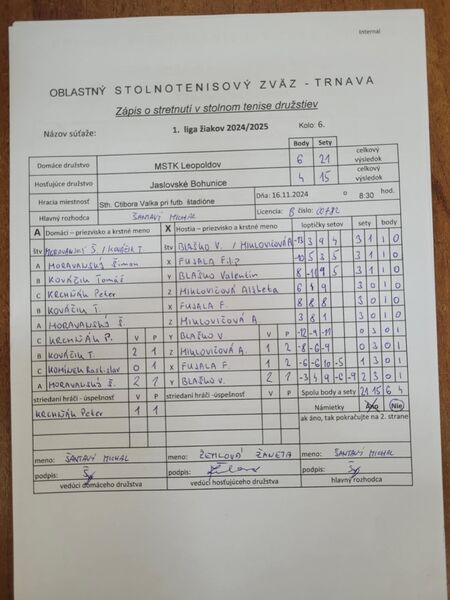 Internal
OBLASTNÝ STOLNOTENISOVÝ ZVÄZ - TRNAVA
Zápis o stretnutí v stolnom tenise družstiev
Názov súťaže: 1. liga žiakov 2024/2025 Kolo: 6.
Body Sety
Domáce družstvo MSTK Leopoldov 6 21 celkový výsledok
Hosťujúce družstvo Jaslovské Bohunice 4 15 celkový výsledok
Hracia miestnosť Sth. Ctibora Valka pri futb. štadióne Dňa: 16.11.2024 o 8:30 hod.
Hlavný rozhodca ŠANTAVÝ MICHAL Licencia: B číslo: 00782
A Domáci – priezvisko a krstné meno X Hostia – priezvisko a krstné meno loptičky setov sety body
štv MORAVANSKÝ Š / KOVÁČIK T. štv BLAŽKO V. / MIKLOVIČOVÁ A -13 3 9 4 3 1 1 0
A MORAVANSKÝ Šimon X FUJALA Filip -10 5 3 5 3 1 1 0
B KOVÁČIK Tomáš Y BLAŽKO Valentín 8 -11 9 5 3 1 1 0
C KRCHŇÁK Peter Z MIKLOVIČOVÁ Alžbeta 6 4 9 3 0 1 0
B KOVÁČIK T. X FUJALA F. 8 8 8 3 0 1 0
A MORAVANSKÝ Š. Z MIKLOVIČOVÁ A. 3 8 1 3 0 1 0
C KRCHŇÁK P. V P Y BLAŽKO V. V P -12 -9 -11 0 3 0 1
B KOVÁČIK T. 2 1 Z MIKLOVIČOVÁ A. 1 2 -8 -6 -9 0 3 0 1
C KOMÍNEK Rastislav 0 1 X FUJALA F. 1 2 -6 -6 10 -5 1 3 0 1
A MORAVANSKÝ Š. 2 1 Y BLAŽKO V. 2 1 -3 4 9 -6 -9 2 3 0 1
striedaní hráči - úspešnosť V P striedaní hráči - úspešnosť V P Spolu body a sety 21 15 6 4
KRCHŇÁK Peter 1 1 Námietky Áno Nie
ak áno, tak pokračujte na 2. strane
meno: ŠANTAVÝ MICHAL meno: ŽEMLOVÁ ŽANETA meno: ŠANTAVÝ MICHAL
podpis: podpis: podpis:
vedúci domáceho družstva vedúci hosťujúceho družstva hlavný rozhodca